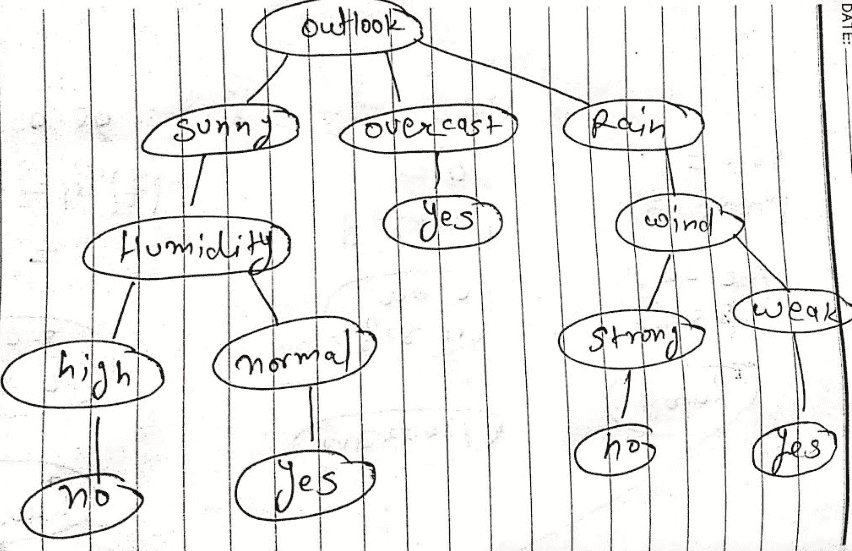 DATE:
outlook
sunny overcast Rain
Humidity yes wind
high normal strong weak
no yes no yes